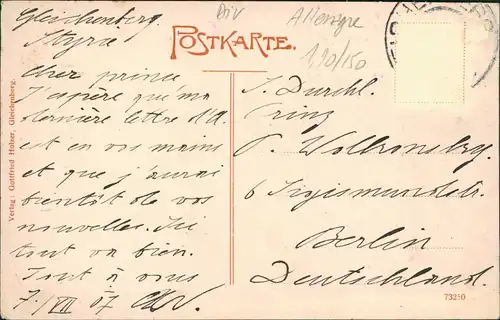 Gleichenberg.
Styrie
Cher prince
J'espère que ma
dernière lettre d'A.
est en vos mains
et que j'aurai
bientôt de vos
nouvelles. Ici
tout va bien.
Tout à vous
7./VII 07
Div
Allemagne
190/150
POSTKARTE.
S. Durchl.
Prinz
P. Wolkonsky.
6 Sigismundstr.
Berlin
Deutschland.
73250
Verlag: Gottfried Holzer, Gleichenberg.